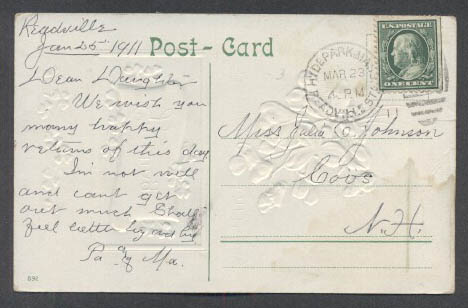 Readville
Jan 25 1911
Post - Card
Dear Daughter
We wish you
many happy
returns of this day
Im not well
and cant get
out much Shall
feel better by and by
Pa & Ma.
892
HYDE PARK
MAR 23
4 PM
U.S. POSTAGE
ONE CENT
Miss Julia C Johnson
Coos
N.H.